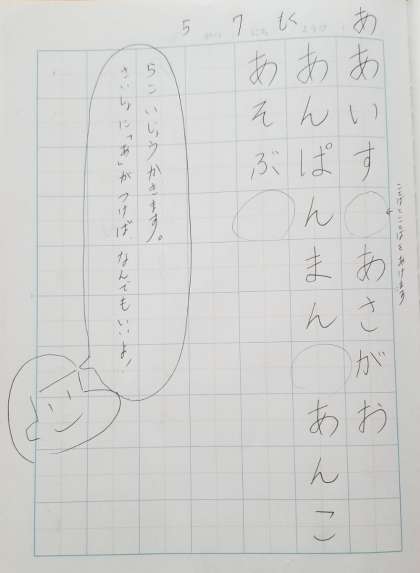 5 がつ 7 にち もく ようび
あ
ことばとことばをあけます
あいす　あさがお
あんぱんまん　あんこ
あそぶ
5こいじょうかきます。
さいしょに「あ」がつけば なんでもいいよ!